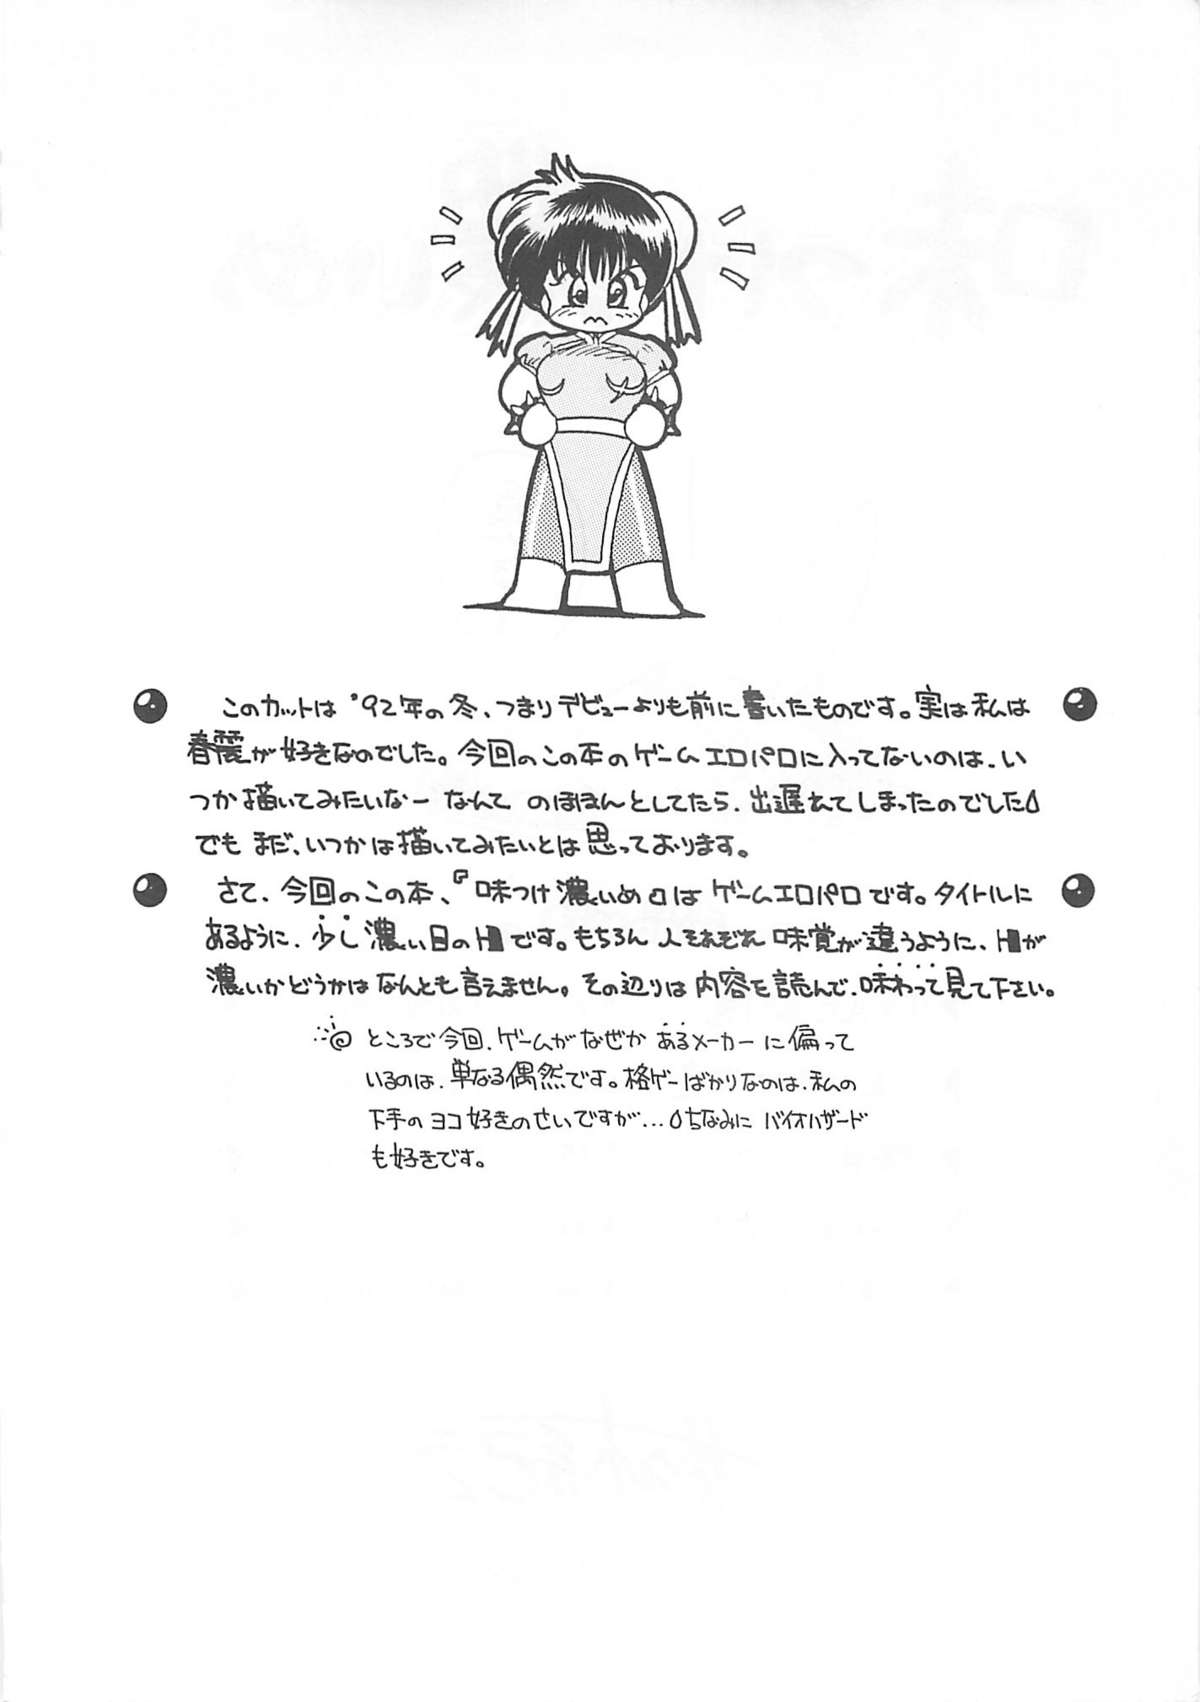 このカットは'92年の冬、つまりデビューよりも前に書いたものです。実は私は
春麗が好きなのでした。今回のこの本のゲームエロパロに入ってないのは、い
つか描いてみたいなーなんてのほほんとしてたら、出遅れてしまったのでした
でもまだ、いつかは描いてみたいとは思っております。
さて、今回のこの本、『味つけ濃いめ』はゲームエロパロです。タイトルに
あるように、少し濃い目のHです。もちろん人それぞれ味覚が違うように、Hが
濃いかどうかはなんとも言えません。その辺りは内容を読んで、味わって見て下さい。
ところで今回、ゲームがなぜかあるメーカーに偏って
いるのは、単なる偶然です。格ゲーばかりなのは、私の
下手のヨコ好きのせいですが…ちなみにバイオハザード
も好きです。